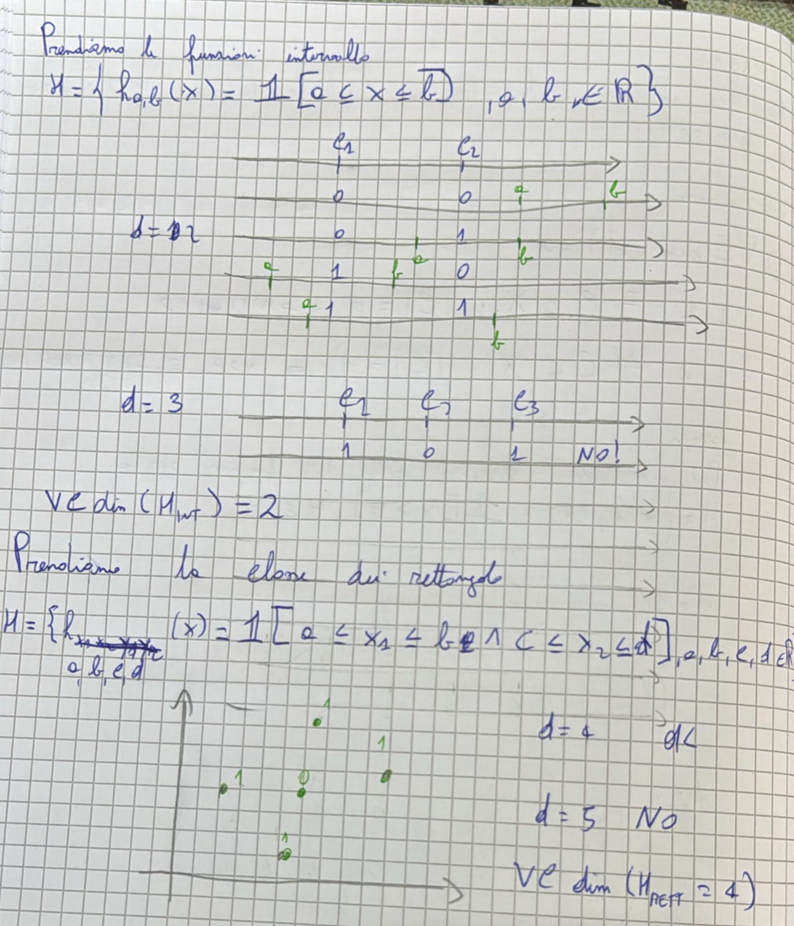 Prendiamo le funzioni intervallo
H = { h a,b (x) = 1 [a ≤ x ≤ b] , a, b, ∈ ℝ }
C1 C2
0 0 a b
d = 2 0 1
a b
a 1 b 0
a 1 1
b
d = 3 C1 C2 C3
1 0 1 NO!
VC dim (H INT) = 2
Prendiamo la classe dei rettangoli
H = { h (x) = 1 [ a ≤ x1 ≤ b ∧ c ≤ x2 ≤ d ] , a, b, c, d ∈ ℝ
a, b, c, d
1
d = 4 ok
1
1 0
d = 5 NO
1
VC dim (H RETT = 4)